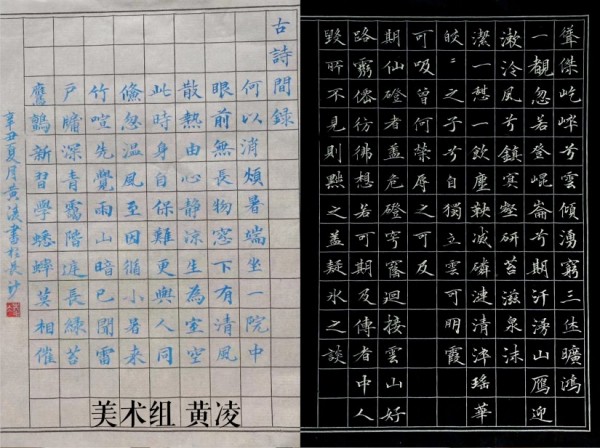 古詩間錄
何以消煩暑端坐一院中
眼前無長物窓下有清風
散熱由心靜涼生為室空
此時身自保難更與人同
倏忽温風至因循小暑來
竹喧先覺雨山暗已聞雷
戶牖深青靄階庭長綠苔
鷹鸇新習學蟋蟀莫相催
辛丑夏月黃淩書於長沙
美术组 黄凌
聳傑屹崪兮雲傾湧窮三休曠鴻
一覩忽若登崐崙兮期汗漫山雁迎
漱泠風兮鎮冥壑研苔滋泉沫
潔一憇一飲塵鞅滅磷漣清淬瑤華
皎〻之子兮自獨立雲可明霞
可吸曾何榮辱之可及
期仙磴者蓋危磴穹窿迴接雲山好
路窮僊彷彿想若可期及傳者中人
毁所不見則黙之蓋疑冰之談